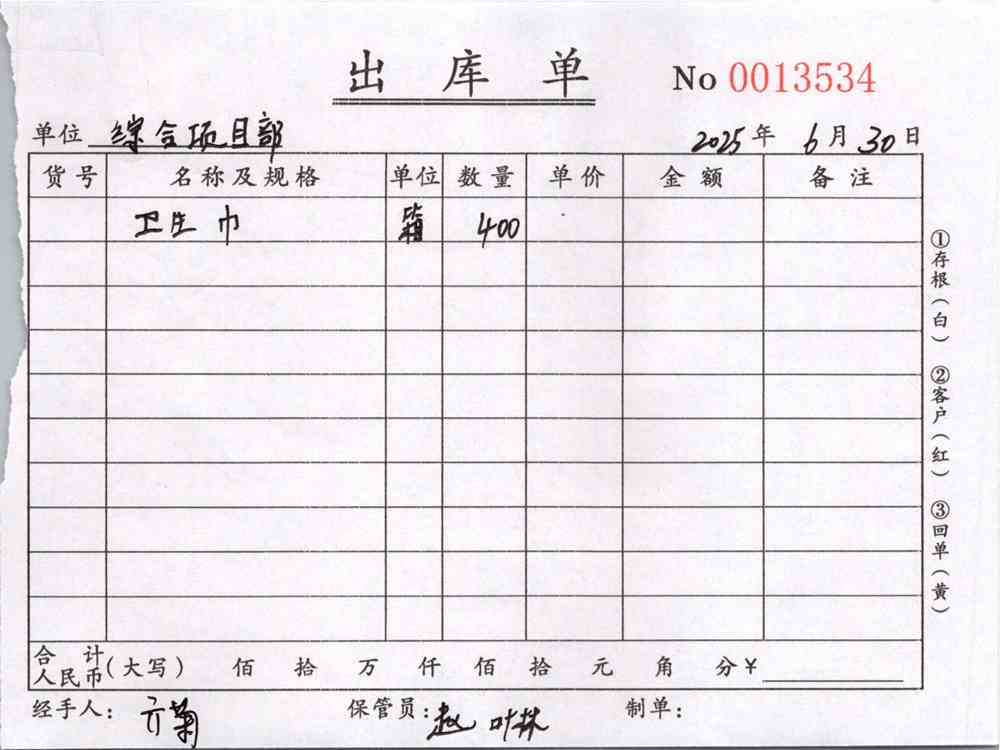 出库单
No 0013534
单位 综合项目部 2025年6月30日
货号 名称及规格 单位 数量 单价 金额 备注
卫生巾 箱 400
合计人民币(大写) 佰 拾 万 仟 佰 拾 元 角 分¥
经手人: 保管员:赵叶林 制单:
①存根(白)
②客户(红)
③回单(黄)